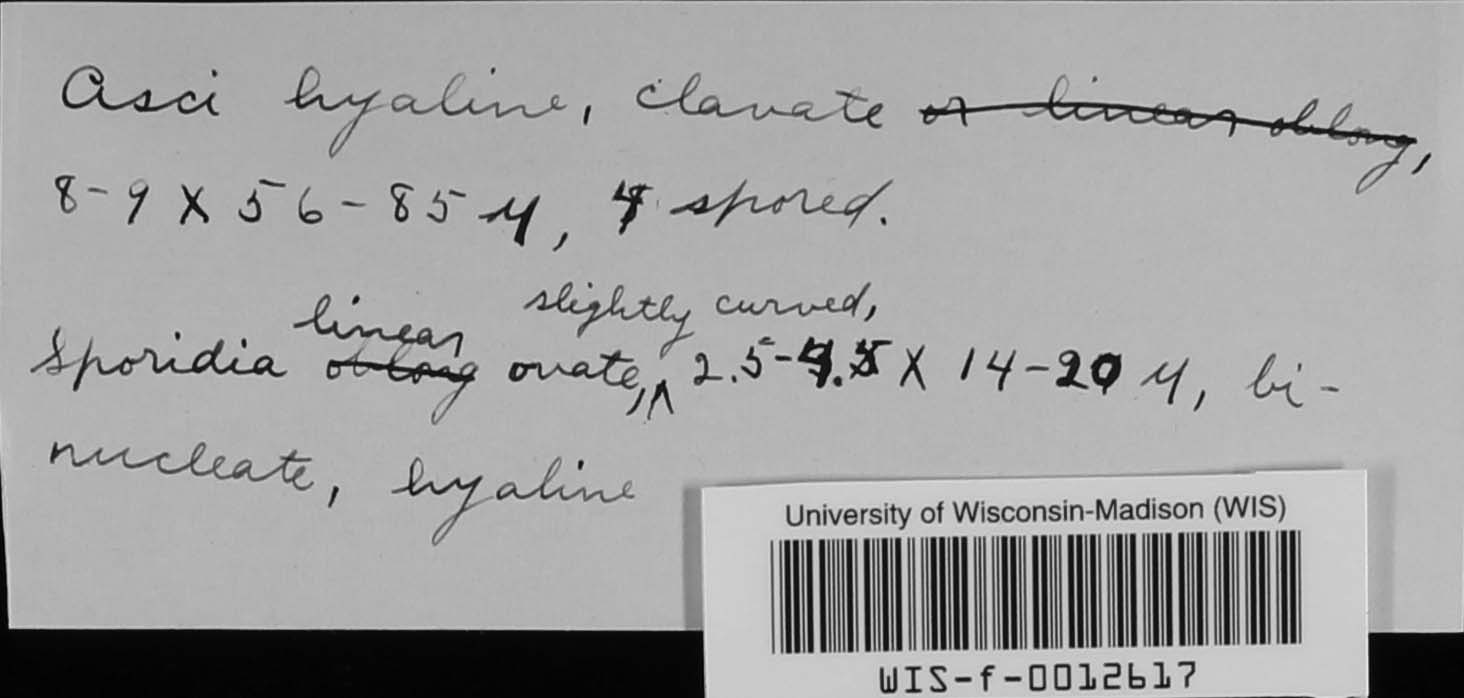 Asci hyaline, clavate or linear oblong,
8-9 X 56-85 μ, 4 spored.
linear slightly curved,
Sporidia oblong ovate, ^ 2.5-4.5 X 14-20 μ, bi-
nucleate, hyaline
University of Wisconsin-Madison (WIS)
WIS-f-0012617